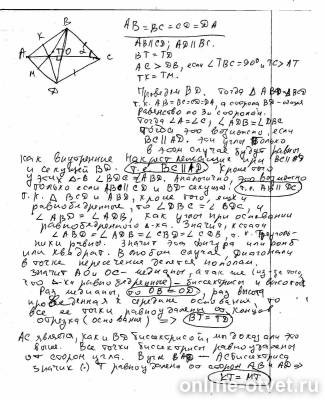 B
K
A
T
O
L
C
M
D
AB=BC=CD=DA
AB||CD; AD||BC.
BT=TD
AC > DB, если ∠TBC=90°, и TC > AT
TK=TM.
Проведём BD, тогда △ABD=△BCD
т.к. AB=BC=CD=DA, а сторона BD - общая
Равенство по 3м сторонам.
Тогда ∠A=∠C, ∠ADB=∠DBC
тогда это возможно, если
BC || AD. Эти углы только
в этом случае будут равны,
как внутренние накрест лежащие при BC||AD
и секущей BD. т.к. BC||AD. Кроме того
только если AB||CD и BD-секущая. т.к. AB||DC
т.к. △BCD и ABD, кроме того, ещё и
равнобедренные, то ∠DBC = ∠BDC, и
∠ABD = ∠ADB, как углы при основании
равнобедренного △ка. Значит, кстати
∠ABD=∠ADB=∠CBD=∠CDB, т.к. треуголь-
ники равны. Значит эта фигура или ромб
или квадрат. В любом случае, диагонали
в точке пересечения делятся пополам.
значит AO и OC - медианы, а так же (из-за того,
что △-ки равнобедренные) - биссектрисы и высоты
Раз медианы, то OB=OD, раз высота
проведённая к середине основания, то
все её точки равноудалены от концов
отрезка (основания) => BT=TD
AC является, как и BD биссектрисой, мы доказали это
выше. Все точки биссектрисы равноудалены
от сторон угла. В угле BAD - AC биссектриса
значит (•) T равноудалена от сторон AB и AD =>
KT=MT
online-otvet.ru